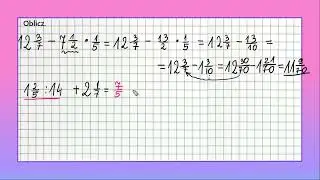 Oblicz.
12 3/7 - 7 1/2 · 1/5 = 12 3/7 - 13/2 · 1/5 = 12 3/7 - 13/10 =
= 12 3/7 - 1 3/10 = 12 30/70 - 1 21/70 = 11 9/70
1 2/5 : 14 + 2 1/7 = 7/5